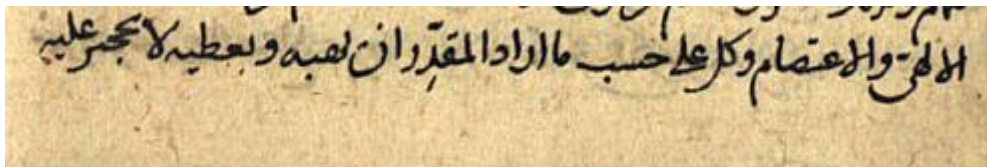 الالهىّ والاعتصام وكل على حسب ما اراد المقدِّر ان يهبه ويعطيه لا يحجر عليه